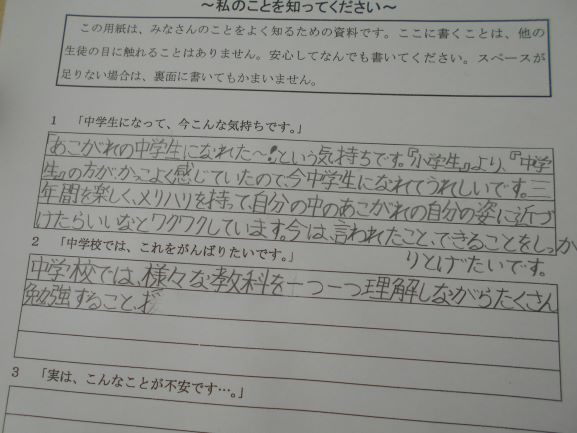 ～私のことを知ってください～
この用紙は、みなさんのことをよく知るための資料です。ここに書くことは、他の
生徒の目に触れることはありません。安心してなんでも書いてください。スペースが
足りない場合は、裏面に書いてもかまいません。
1 「中学生になって、今こんな気持ちです。」
あこがれの中学生になれた～!という気持ちです。『小学生』より、『中学
生』の方が、かっこよく感じていたので、今中学生になれてうれしいです。三
年間を楽しく、メリハリを持って、自分の中のあこがれの自分の姿に近づ
けたらいいなとワクワクしています。今は、言われたこと、できることをしっか
りとげたいです。
2 「中学校では、これをがんばりたいです。」
中学校では、様々な教科を一つ一つ理解しながらたくさん
勉強すること、
3 「実は、こんなことが不安です…。」